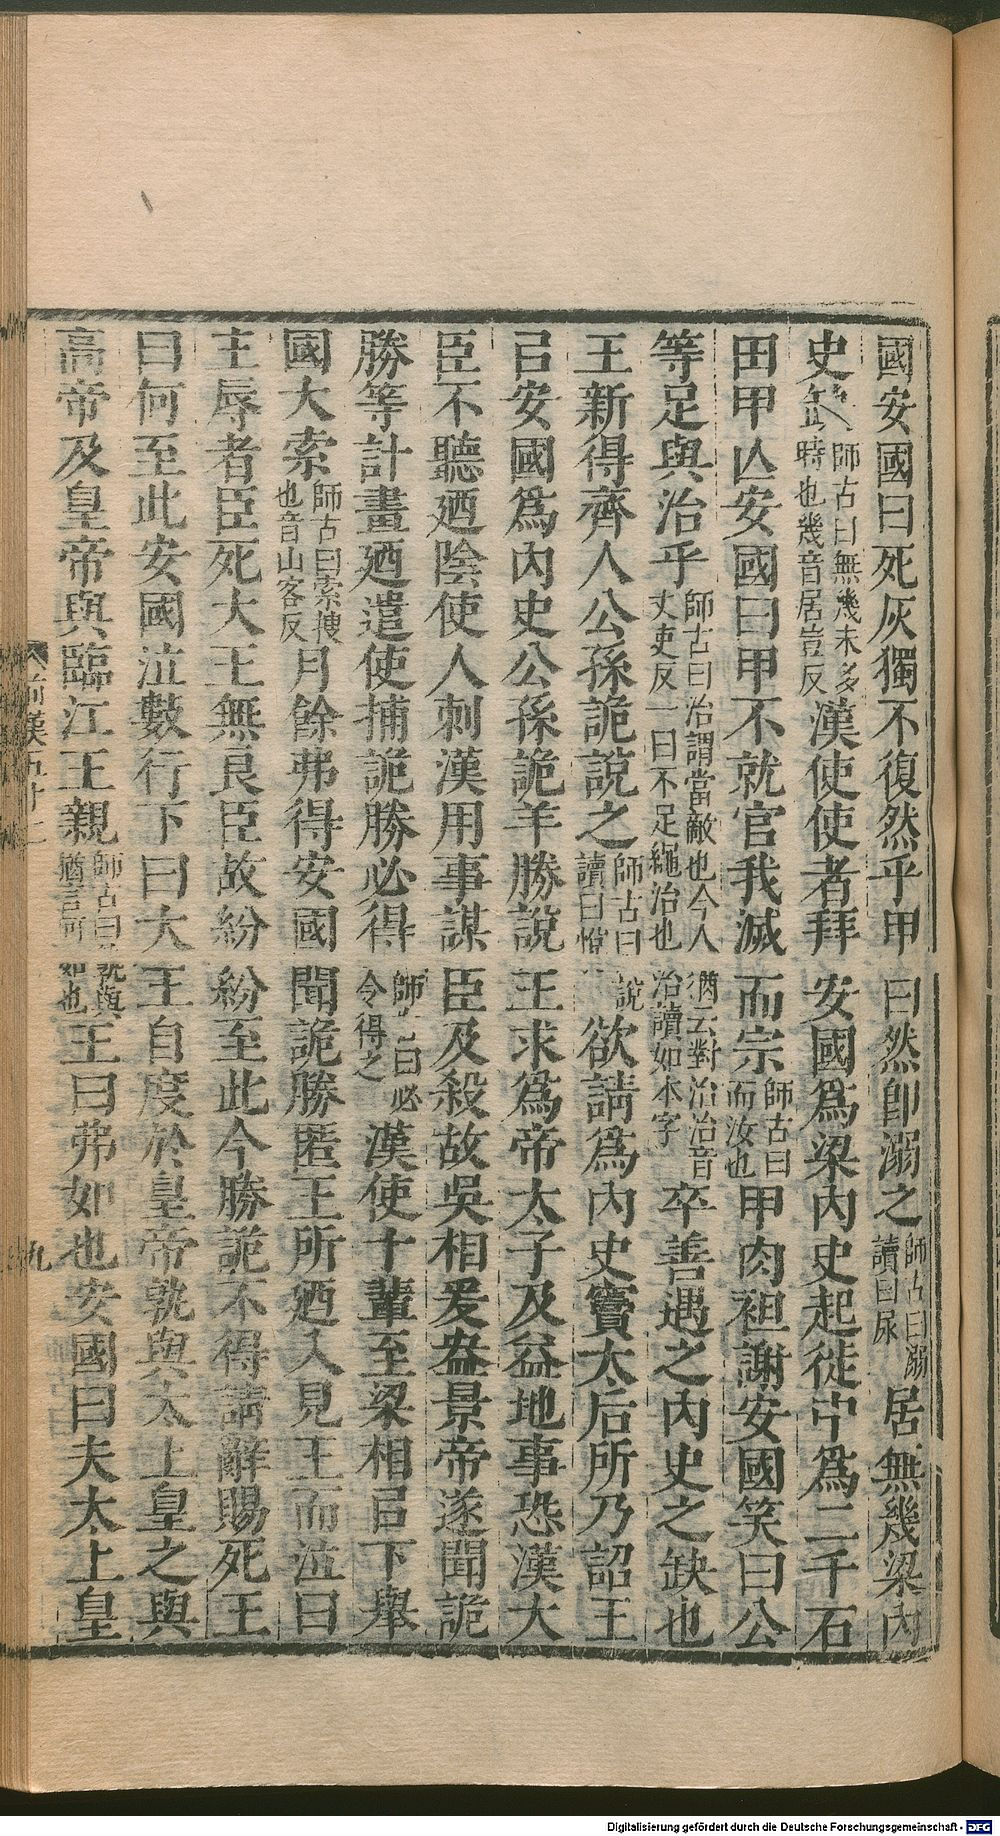 國安國曰死灰獨不復然乎甲曰然即溺之師古曰溺讀曰尿居無幾梁內
史缺師古曰無幾未多時也幾音居豈反漢使使者拜安國爲梁內史起徒中爲二千石
田甲亾安國曰甲不就官我滅而宗師古曰而汝也甲肉袒謝安國笑曰公
等足與治乎師古曰治謂當敵也今人猶云對治治音丈吏反一曰不足繩治也治讀如本字卒善遇之內史之缺也
王新得齊人公孫詭說之師古曰說讀曰悅欲請爲內史竇太后所乃詔王
㠯安國爲內史公孫詭羊勝說王求爲帝太子及益地事恐漢大
臣不聽迺陰使人刺漢用事謀臣及殺故吳相爰盎景帝遂聞詭
勝等計畫迺遣使捕詭勝必得師古曰必令得之漢使十輩至梁相㠯下舉
國大索師古曰索搜也音山客反月餘弗得安國聞詭勝匿王所迺入見王而泣曰
主辱者臣死大王無良臣故紛紛至此今勝詭不得請辭賜死王
曰何至此安國泣數行下曰大王自度於皇帝孰與太上皇之與
高帝及皇帝與臨江王親師古曰孰與猶言何如也王曰弗如也安國曰夫太上皇
前漢五十二
九
Digitalisierung gefördert durch die Deutsche Forschungsgemeinschaft - DFG